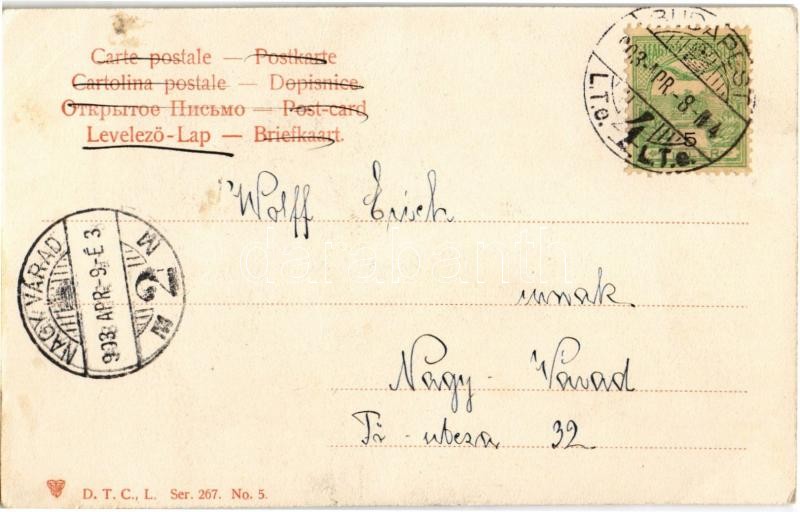 Carte postale — Postkarte
Cartolina postale — Dopisnice
Открытое Письмо — Post-card
Levelező-Lap — Briefkaart.
BUDAPEST
903 APR. -8
L.T.e. L.T.e.
5
Wolff Erich
úrnak
Nagy-Várad
Fő-utcza 32
NAGY-VÁRAD
903 APR. -9. É 3
M 2 M
darabanth
D. T. C., L. Ser. 267. No. 5.